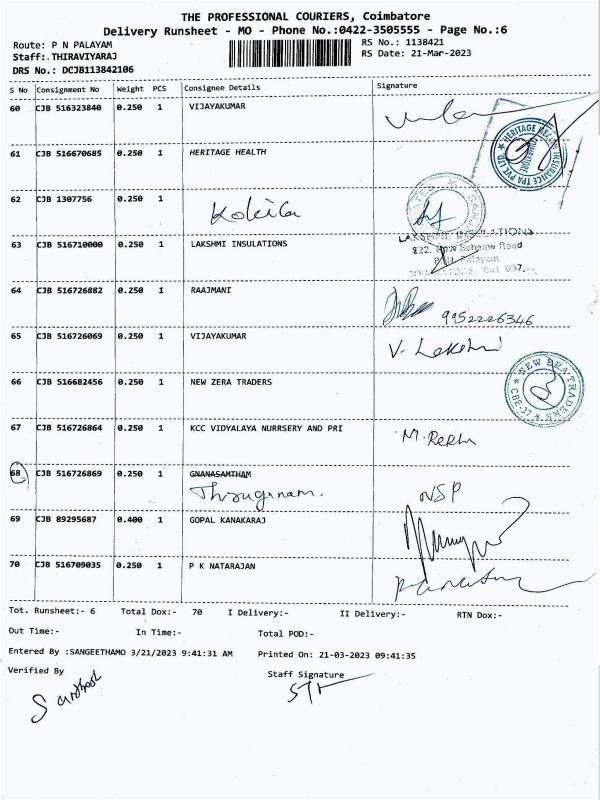 THE PROFESSIONAL COURIERS, Coimbatore
Delivery Runsheet - MO - Phone No.:0422-3505555 - Page No.:6
Route: P N PALAYAM
RS No.: 1138421
Staff: THIRAVIYARAJ
RS Date: 21-Mar-2023
DRS No.: DCJB113842106
S No Consignment No Weight PCS Consignee Details Signature
60 CJB 516323840 0.250 1 VIJAYAKUMAR
HERITAGE HEALTH INSURANCE TPA PVT. LTD.
61 CJB 516670685 0.250 1 HERITAGE HEALTH
62 CJB 1307756 0.250 1
Kokila
63 CJB 516710000 0.250 1 LAKSHMI INSULATIONS
LAKSHMI INSULATIONS
822, New Scheme Road
P.N. Palayam
64 CJB 516726882 0.250 1 RAAJMANI
9952226346
65 CJB 516726069 0.250 1 VIJAYAKUMAR
V. Lakshmi
66 CJB 516682456 0.250 1 NEW ZERA TRADERS
NEW ERA TRADERS CBE-37
67 CJB 516726864 0.250 1 KCC VIDYALAYA NURRSERY AND PRI
M. Rekha
68 CJB 516726869 0.250 1 GNANASAMTHAM
Thirugnanam.
NSP
69 CJB 89295687 0.400 1 GOPAL KANAKARAJ
70 CJB 516709035 0.250 1 P K NATARAJAN
Tot. Runsheet:- 6 Total Dox:- 70 I Delivery:- II Delivery:- RTN Dox:-
Out Time:- In Time:- Total POD:-
Entered By :SANGEETHAMO 3/21/2023 9:41:31 AM Printed On: 21-03-2023 09:41:35
Verified By
Staff Signature